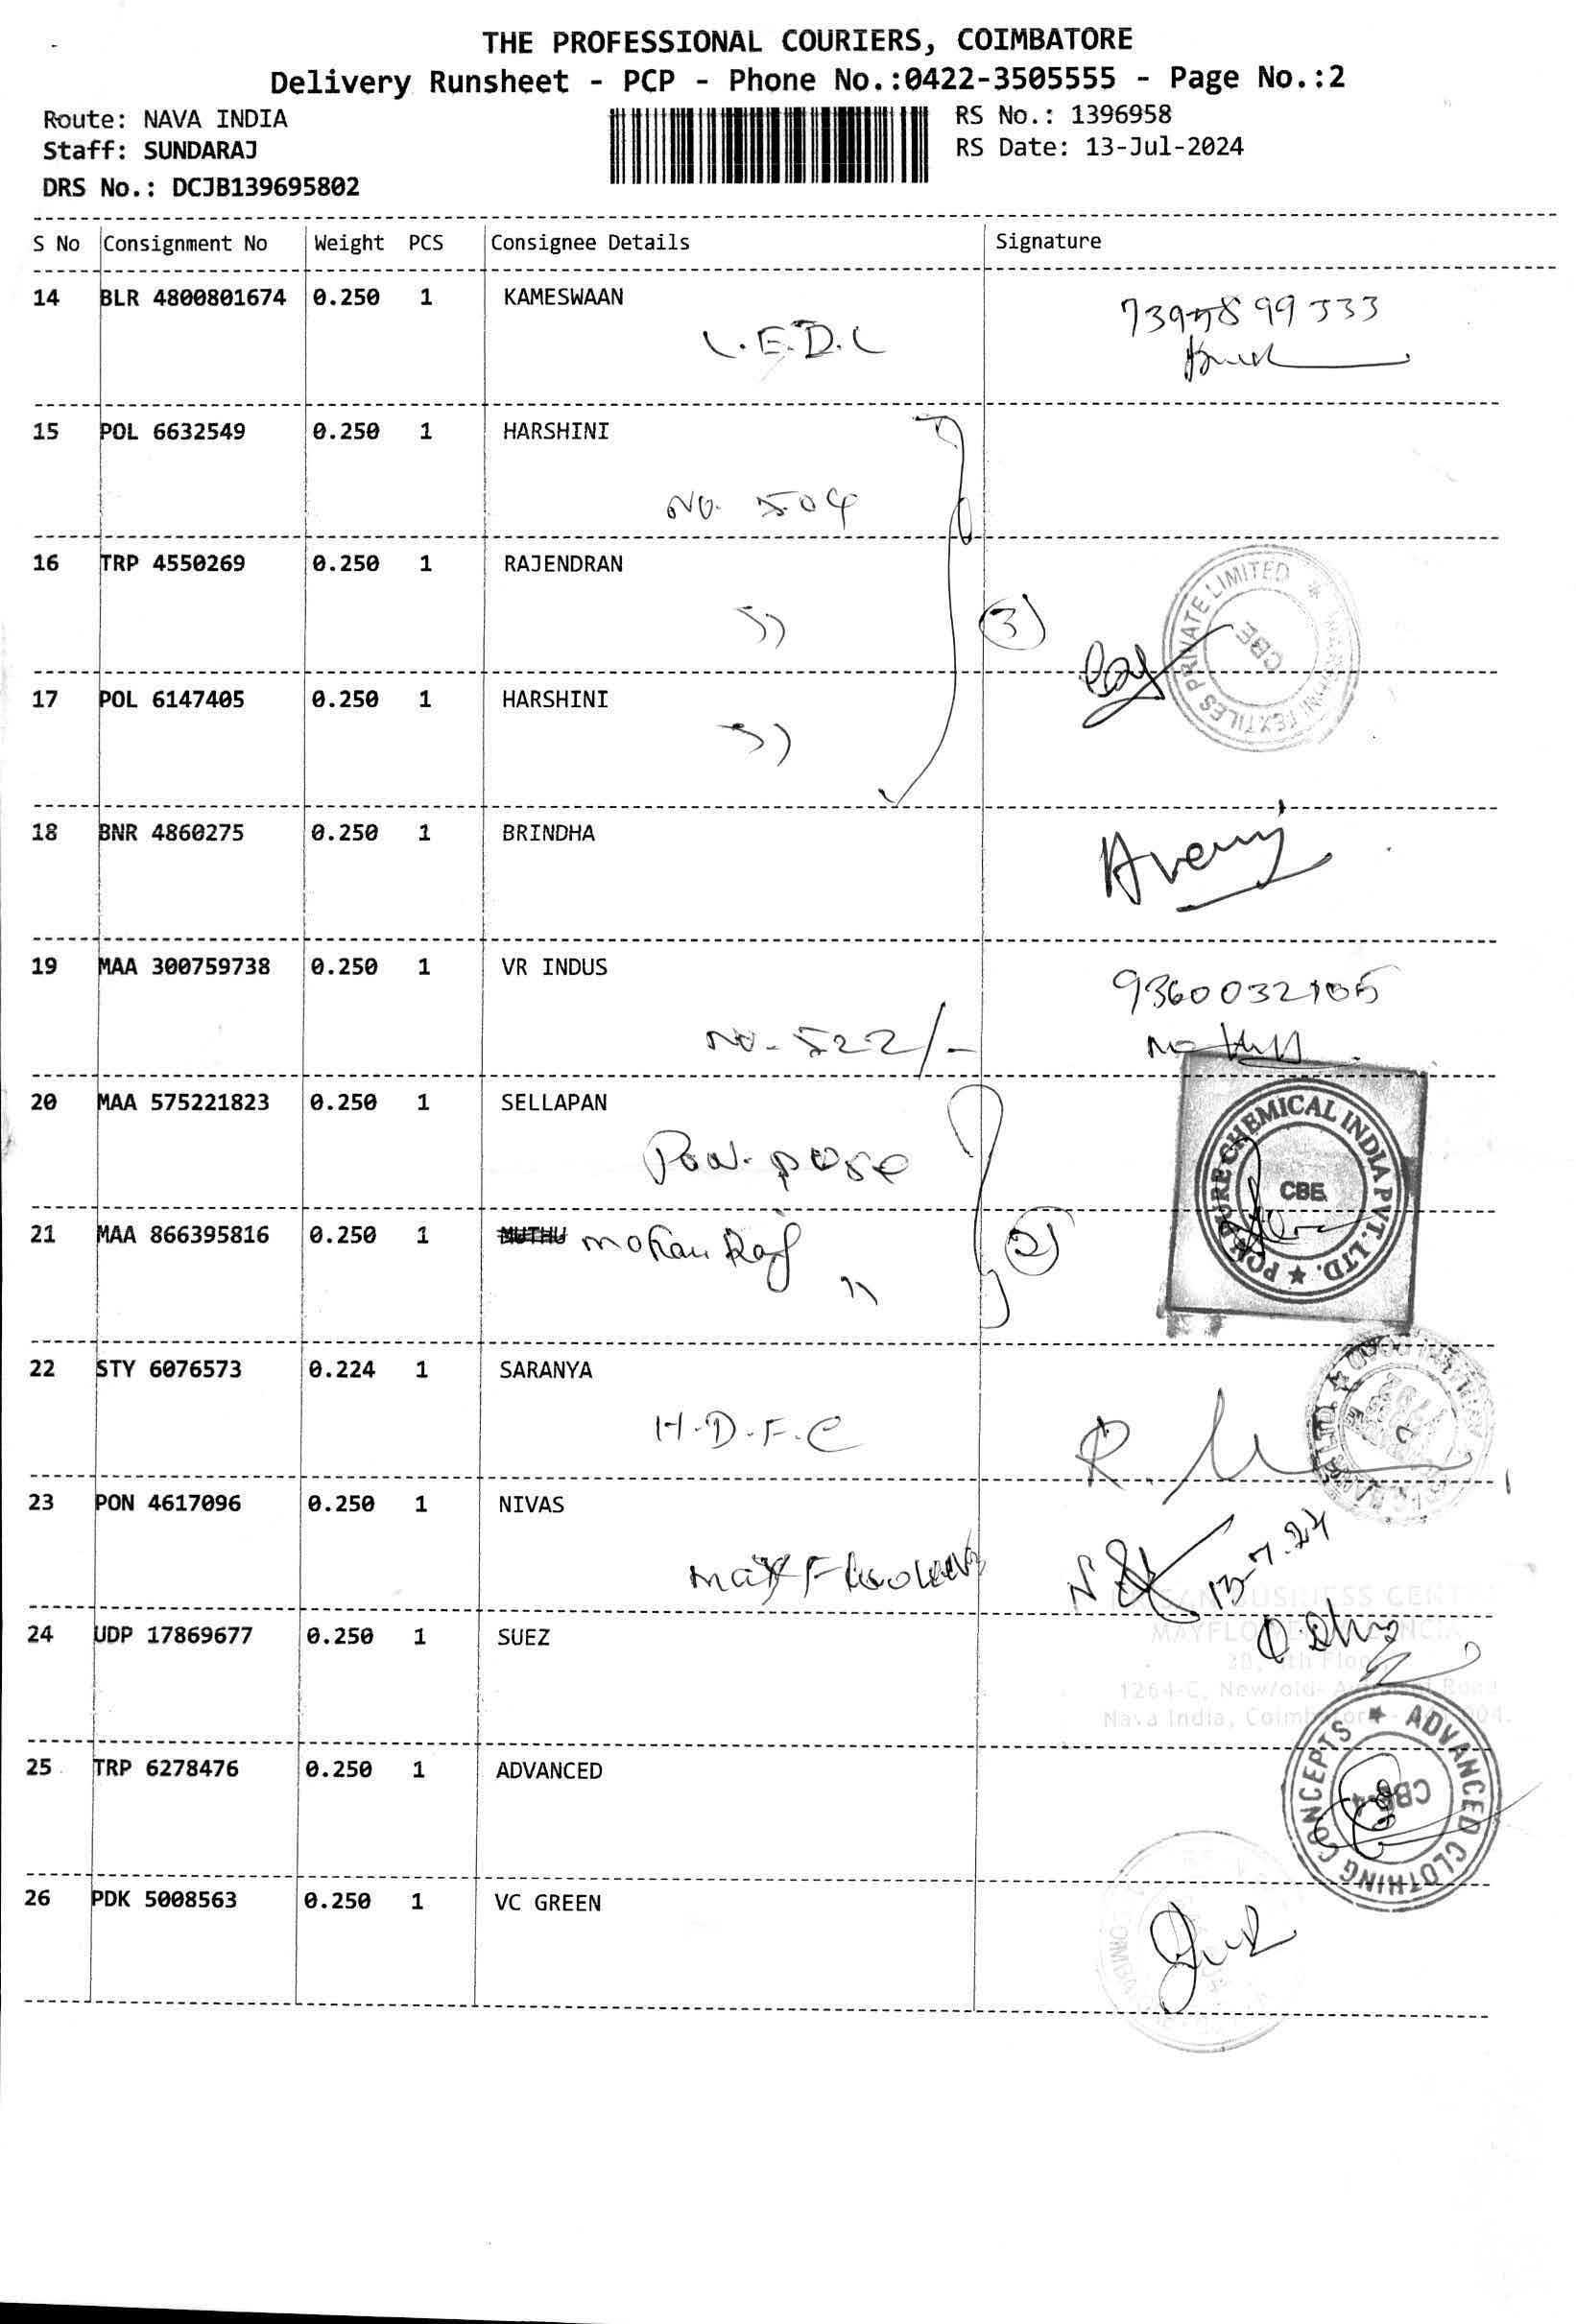 THE PROFESSIONAL COURIERS, COIMBATORE
Delivery Runsheet - PCP - Phone No.:0422-3505555 - Page No.:2
Route: NAVA INDIA
RS No.: 1396958
Staff: SUNDARAJ
RS Date: 13-Jul-2024
DRS No.: DCJB139695802
S No Consignment No Weight PCS Consignee Details Signature
14 BLR 4800801674 0.250 1 KAMESWAAN
15 POL 6632549 0.250 1 HARSHINI
No. 504
16 TRP 4550269 0.250 1 RAJENDRAN
3
TEXTILES PRIVATE LIMITED
CBE
17 POL 6147405 0.250 1 HARSHINI
18 BNR 4860275 0.250 1 BRINDHA
19 MAA 300759738 0.250 1 VR INDUS
No - 522/-
20 MAA 575221823 0.250 1 SELLAPAN
PURE CHEMICAL INDIA PVT. LTD.
CBE.
21 MAA 866395816 0.250 1 MUTHU Mohan Raj
2
22 STY 6076573 0.224 1 SARANYA
H.D.F.C
23 PON 4617096 0.250 1 NIVAS
13-7-24
BUSINESS
24 UDP 17869677 0.250 1 SUEZ
1264-C, New/old-
Nava India,
25 TRP 6278476 0.250 1 ADVANCED
ADVANCED CLOTHING CONCEPTS
26 PDK 5008563 0.250 1 VC GREEN